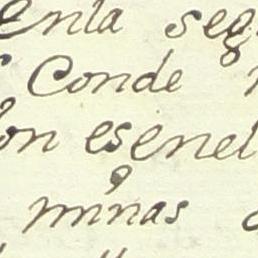 enla seg
Conde
on esenel
minas